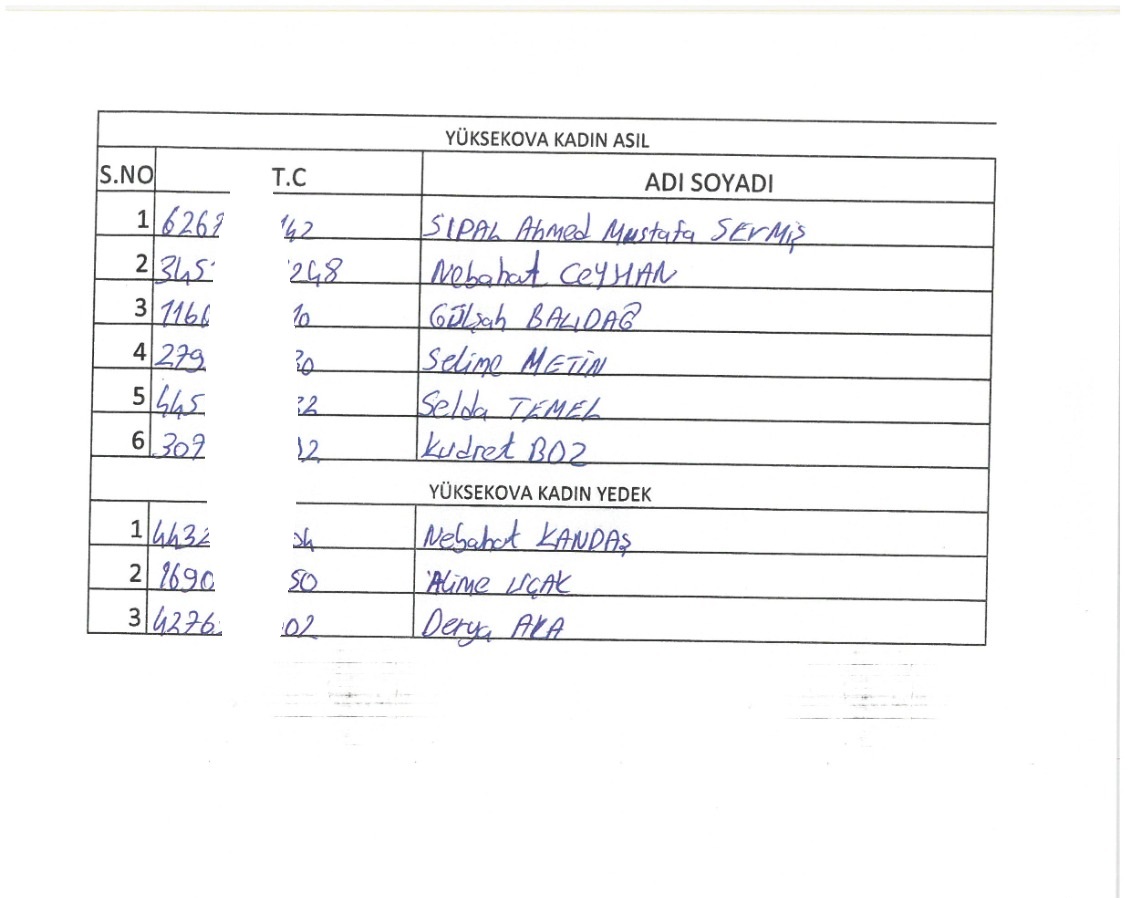 YÜKSEKOVA KADIN ASIL
S.NO T.C ADI SOYADI
1 6267 142 SIPAL Ahmed Mustafa SERMİŞ
2 345 248 Nebahat CEYHAN
3 1166 10 Gülşah BALIDAĞ
4 279 30 Selime METİN
5 445 22 Selda TEMEL
6 309 12 Kudret BOZ
YÜKSEKOVA KADIN YEDEK
1 4432 04 Nebahat KANDAŞ
2 1690 50 Alime UÇAK
3 4276 02 Derya AKA